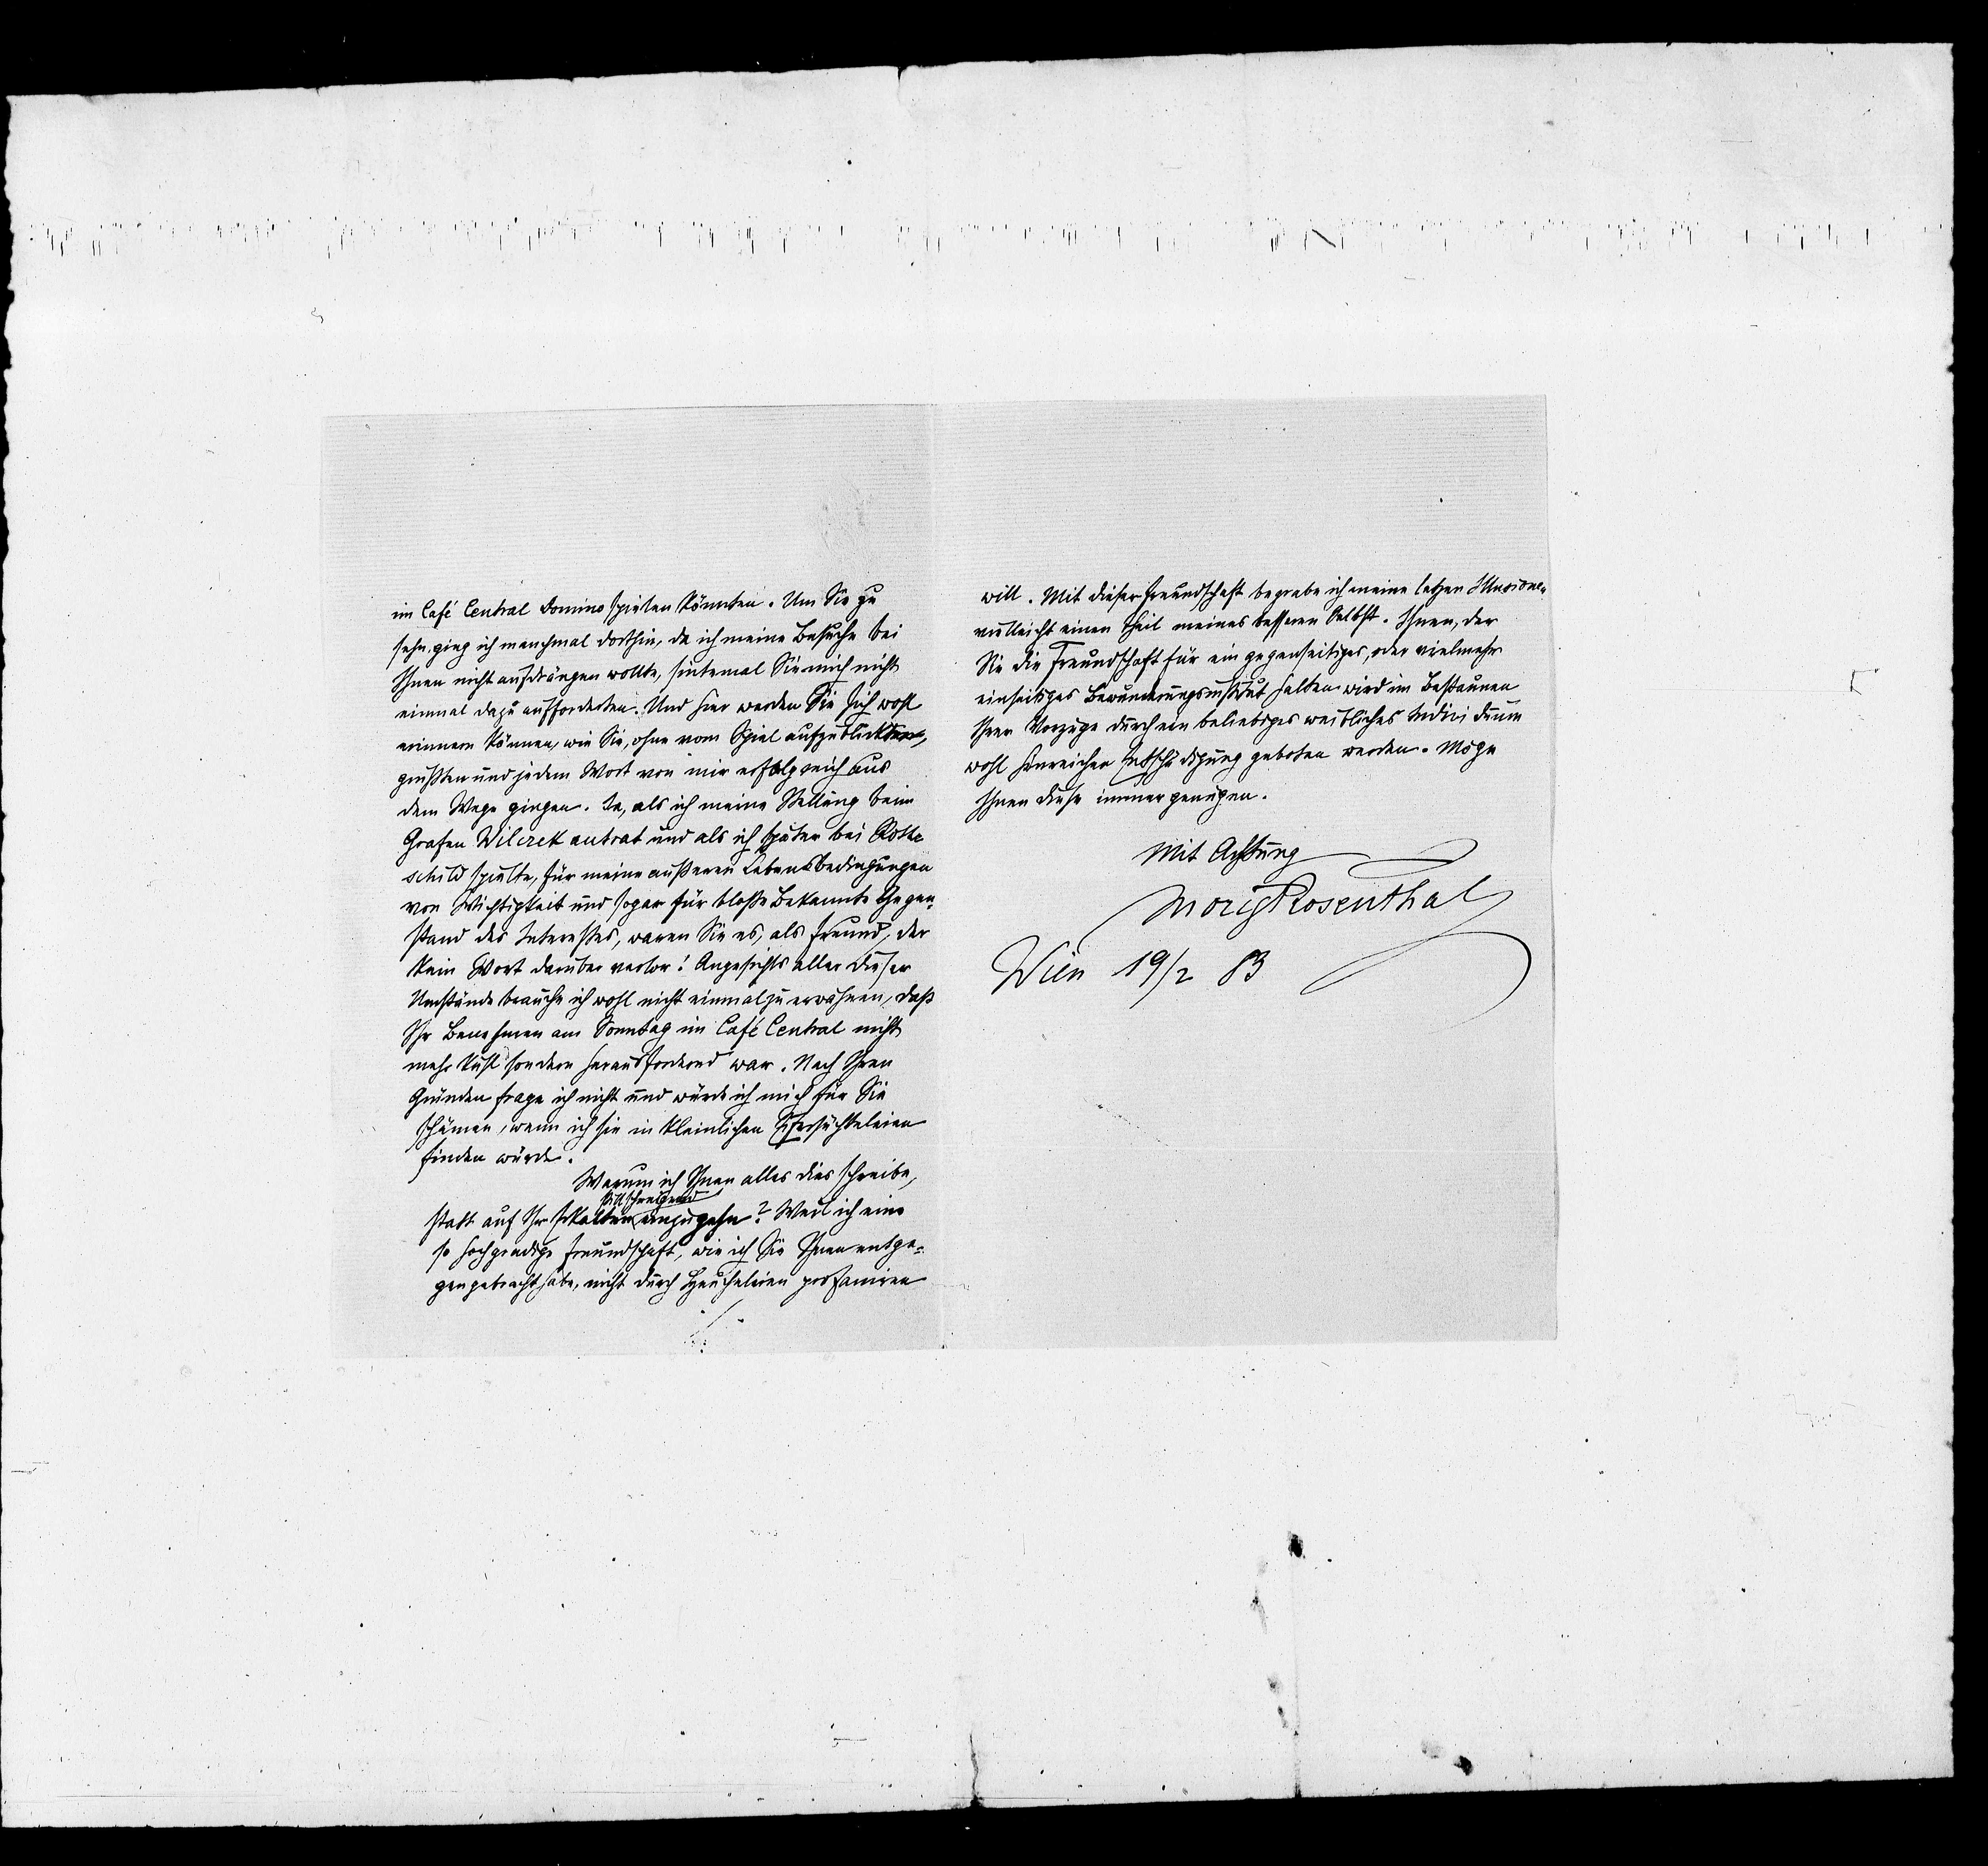 im Café Central Domino spielen könnten. Um Sie zu
sehn, ging ich manchmal dorthin, da ich meine Besuche bei
Ihnen nicht aufdrängen wollte, sintemal Sie mich nicht
einmal dazu aufforderten. Und hier werden Sie sich wohl
erinnern können, wie Sie, ohne vom Spiel aufzublicken,
grüßten und jedem Wort von mir erfolgreich aus
dem Wege gingen. Ja, als ich meine Stellung beim
Grafen Wilczek antrat und als ich später bei Roth-
schild spielte, für meine äußeren Lebensbedingungen
von Wichtigkeit und sogar für bloße Bekannte Gegen-
stand des Interesses, waren Sie es, als Freund, der
kein Wort darüber verlor! Angesichts aller dieser
Umstände brauche ich wohl nicht einmal zu erwähnen, daß
Ihr Benehmen am Sonntag im Café Central nicht
mehr kühl sondern herausfordernd war. Nach Ihren
Gründen frage ich nicht und würde ich mich für Sie
schämen, wenn ich sie in kleinlichen Eifersüchteleien
finden würde.
Warum ich Ihnen alles dies schreibe,
stillschweigend
statt auf Ihr Erkalten einzugehn? Weil ich eine
so hochgradige Freundschaft, wie ich Sie Ihnen entge-
gengebracht habe, nicht durch Heucheleien profaniren
will. Mit dieser Freundschaft begrabe ich meine letzen Illusionen
vielleicht einen Theil meines besseren Selbst. Ihnen, der
Sie die Freundschaft für ein gegenseitiges, oder vielmehr
einseitiges Bewunderungsinstitut halten wird im Bestaunen
Ihrer Vorzüge durch ein beliebiges weibliches Individuum
wohl hinreichen Entschädigung geboten werden. Möge
Ihnen diese immer genügen.
Mit Achtung
Moriz Rosenthal
Wien 19/2 83